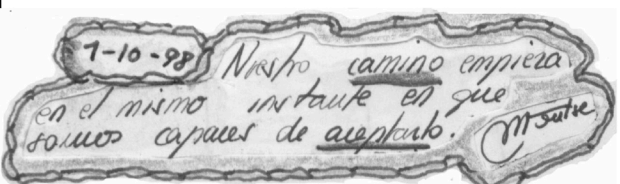 1-10-98
Nuestro camino empieza
en el mismo instante en que
somos capaces de aceptarlo.